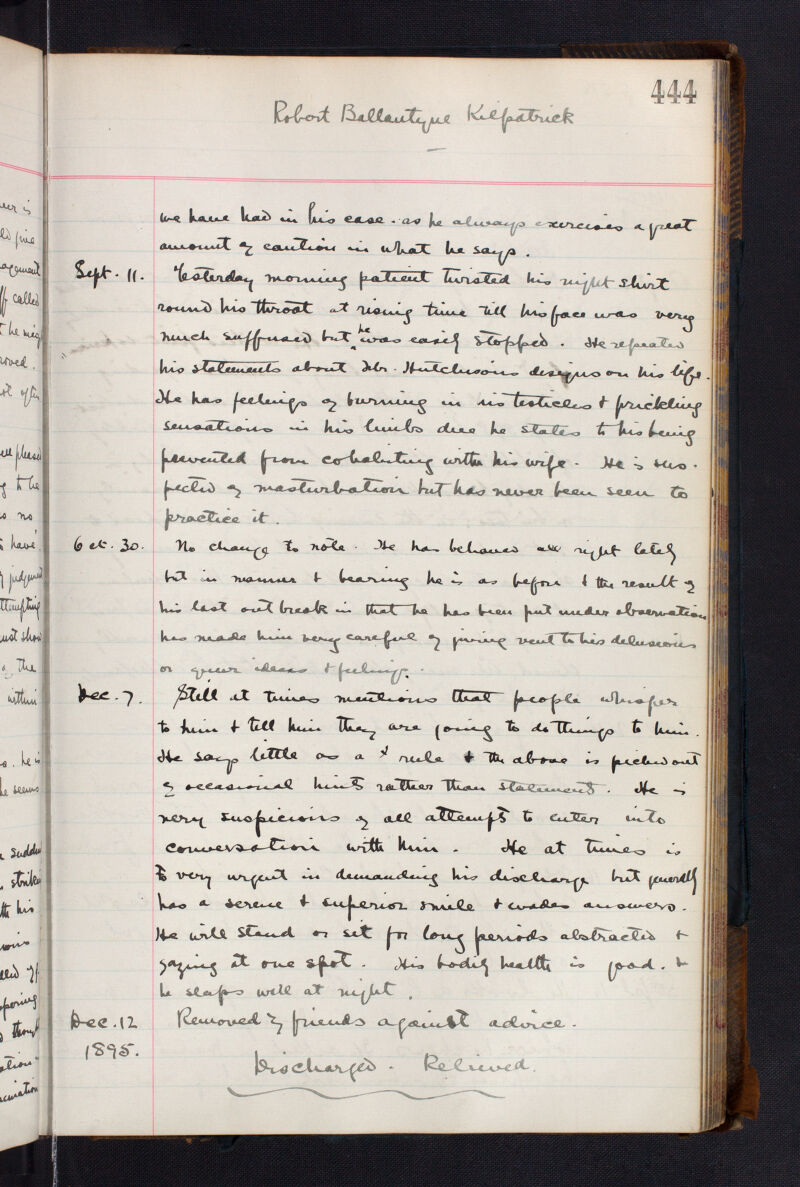 444
Robert Ballantyne Kilpatrick
we have had in his case - as he always exercises a great
amount of caution in what he says.
Sept. 11. Yesterday morning patient twisted his night shirt
round his throat at rising time till his face was very
much suffused but he was easily stopped. He repeated
his statements about Mr. Hutchison's designs on his life.
He has feelings of burning in his testicles & prickling
sensations in his limbs due he states to his being
prevented from cohabiting with his wife. He is sus-
pected of masturbation but has never been seen to
practice it.
Oct. 30. No change to note. He has behaved all right lately
but in manner & bearing he is as before & the result of
his last outbreak in that he has been put under observation
has made him very careful of giving vent to his delusions
or queer ideas & feelings.
Dec. 7. Still at times mentions that people whisper
to him & tell him they are going to do things to him.
He says little as a rule & the above is picked out
of occasional hints rather than statements. He is
very suspicious of all attempts to enter into
conversation with him. He at times is
very urgent in demanding his discharge but generally
has a serene & superior smile & evades answers.
He will stand or sit for long periods abstracted &
gazing at one spot. His bodily health is good. &
he sleeps well at night.
Dec. 12 Removed by friends against advice.
1895.
Discharged - Relieved.